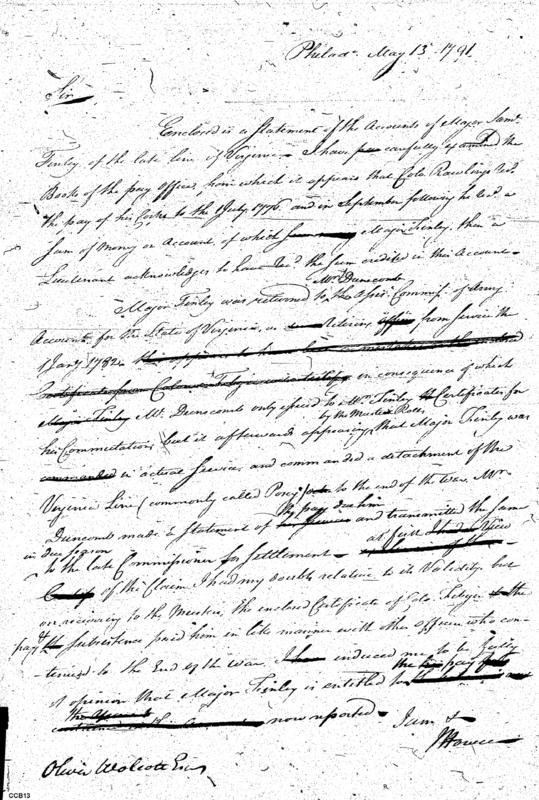 Philada. May 13 1791
Sir
Enclosed is a Statement of the Accounts of Major Saml.
Finley of the late Line of Virginia - I have carefully examined the
Books of the pay Office, from which it appears that Colo. Rawlings recd.
the pay of his Corps to the 1 July 1776, and in September following he recd. a
Sum of Money on Account, of which Major Finley, then a
Lieutenant acknowledges to have recd. the Sum credited in this Account -
Mr. Dunscomb
Major Finley was returned to the Assist. Commissr. of Army
Accounts for the State of Virginia, as retiring from Service the
1 Jany 1782
in consequence of which
Mr. Dunscomb only issued to Mr. Finley Certificates for
by the Muster Rolls
his Commutation, but it afterwards appearing, that Major Finley was
in actual Service, and commanded a detachment of the
Virginia Line (commonly called Posey to the end of the War. Mr.
the pay due him
Dunscomb made a Statement of and transmitted the same
in due season at first
to the late Commissioner for Settlement -
of the Claim I had my doubts relative to its Validity, but
on recurring to the Musters, the enclosed Certificate of Colo. Febiger the
pay & Subsistence paid him in like manner with other Officers who con-
-tinued to the End of the War, induced me to be
of opinion that Major Finley is entitled to the pay
now reported - I am &
J Howell
Oliver Wolcott Esq
CCB13